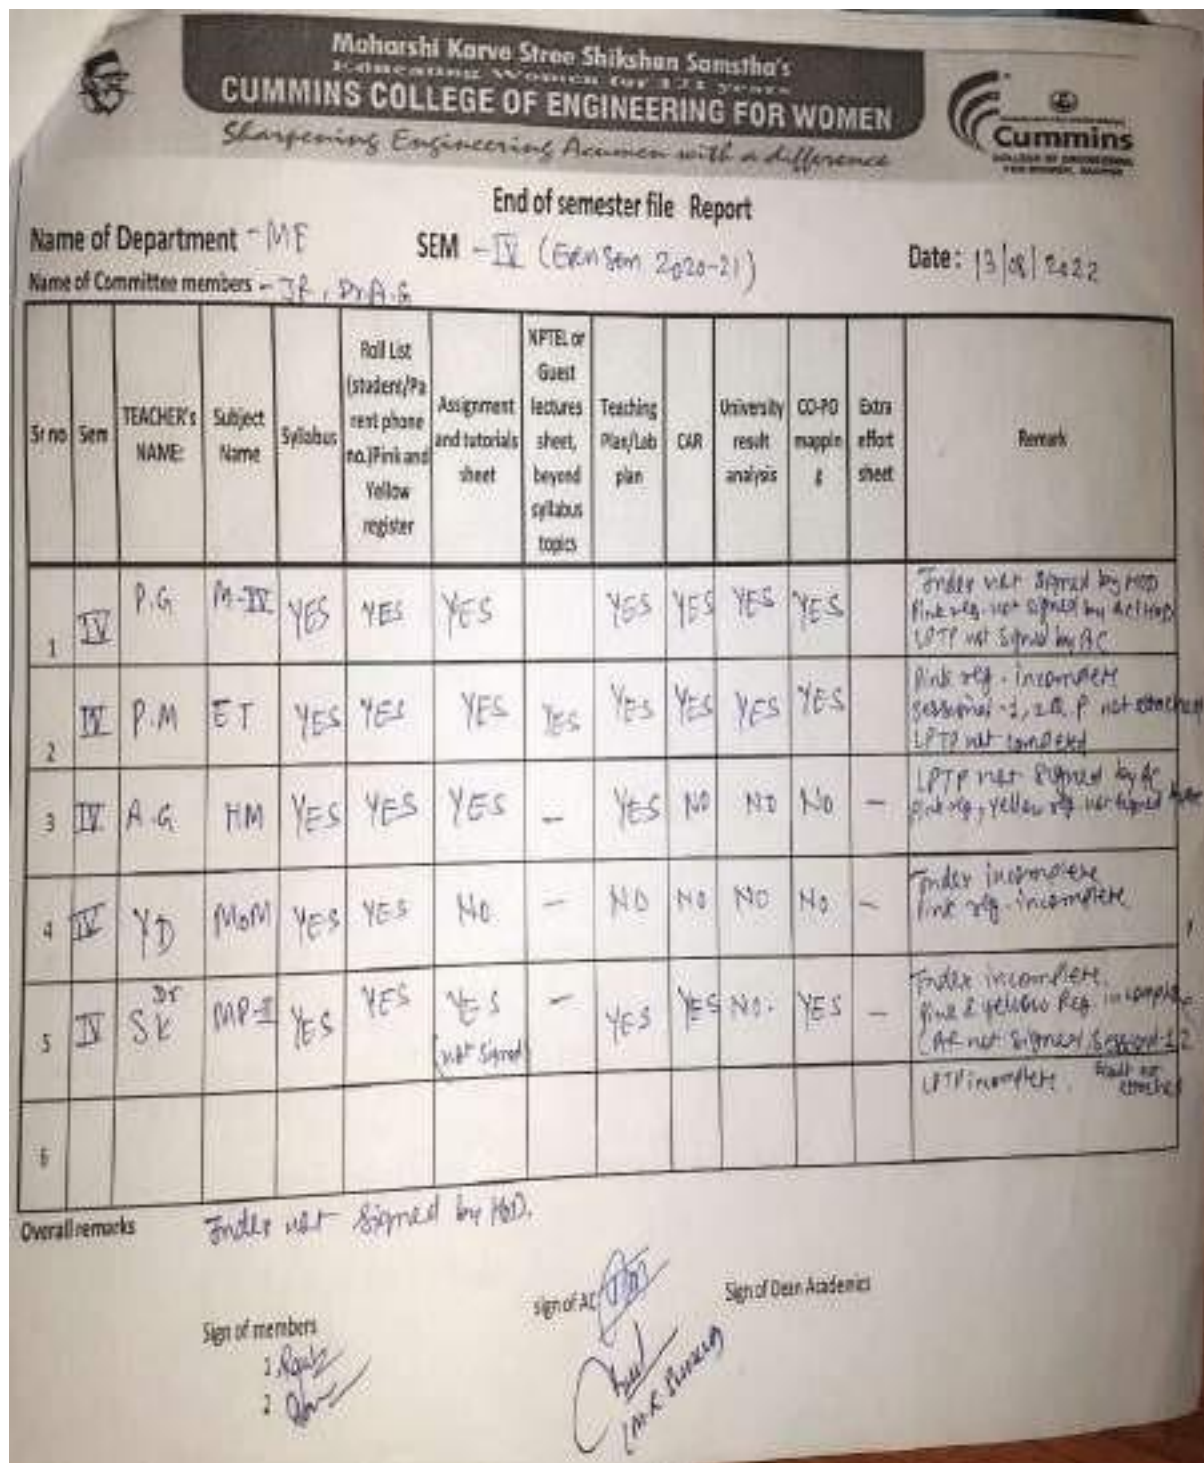 Maharshi Karve Stree Shikshan Samstha's
Educating Women for 121 years
CUMMINS COLLEGE OF ENGINEERING FOR WOMEN
Sharpening Engineering Acumen with a difference
Cummins
COLLEGE OF ENGINEERING
FOR WOMEN, NAGPUR
End of semester file Report
Name of Department - ME SEM - IV (Even Sem 2020-21) Date: 13/08/2022
Name of Committee members - JR, Dr.A.G
Sr no Sem TEACHER's NAME: Subject Name Syllabus Roll List (student/Parent phone no.)Pink and Yellow register Assignment and tutorials sheet NPTEL or Guest lectures sheet, beyond syllabus topics Teaching Plan/Lab plan CAR University result analysis CO-PO mapping Extra effort sheet Remark
1 IV P.G M-IV YES YES YES YES YES YES YES Index not signed by HOD
Pink reg. not signed by AC/HOD
LPTP not signed by AC
2 IV P.M ET YES YES YES YES YES YES YES YES Pink reg. incomplete
sessional-1,2 Q.P not attached
LPTP not completed
3 IV A.G HM YES YES YES - YES NO NO NO - LPTP not signed by AC
Pink reg, yellow reg. not signed
4 IV YD MoM YES YES NO - NO NO NO NO - Index incomplete
Pink reg. incomplete
5 IV Dr SK MP-II YES YES YES (not signed) - YES YES NO. YES - Index incomplete.
Pink & yellow Reg. incomplete
CAR not signed, Session-1,2
LPTP incomplete. not attached
6
Overall remarks Index not signed by HOD.
Sign of members sign of AC Sign of Dean Academics
1.
2